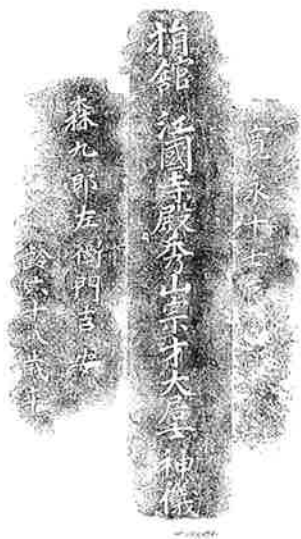 寛永十
捐館 江國寺殿秀山宗才大居士神儀
森九郎左衛門吉安
齢六十八歳卒